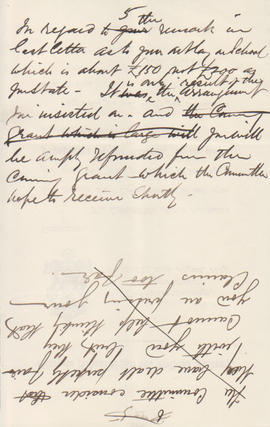 5
In regard to your the remark in
last letter as to your outlay on school
which is about £150 not £200 as
you state - It was is only result of the arrangement
you insisted on - and the
grant which is large will You will
be amply refunded from the
Coming grant which the Committee
hope to receive shortly -
6
The Committee consider that
they have dealt perfectly fair
with you but they
cannot help think that
you are your
Claims too far -